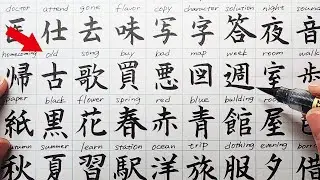 doctor attend gone flavor copy character solution night sound
医 仕 去 味 写 字 答 夜 音
homecoming old song buy bad map week room
帰 古 歌 買 悪 図 週 室 歩
paper black flower spring red blue building
紙 黒 花 春 赤 青 館 屋
autumn summer learn station ocean trip clothing evening
秋 夏 習 駅 洋 旅 服 夕 借